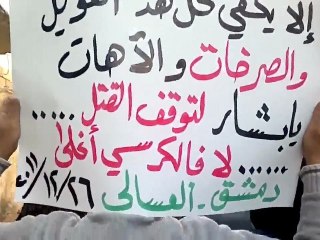 ألا يكفي كل هذا العويل
والصرخات والآهات
يابشار لتوقف القتل .....
...... لا فالكرسي أغلى
دمشق - العسالي ٢٠١١/١٢/٢٦